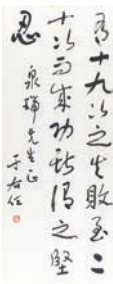 有十九次之失敗至二
十次而成功斯謂之堅
忍
泉瑞先生正
于右任